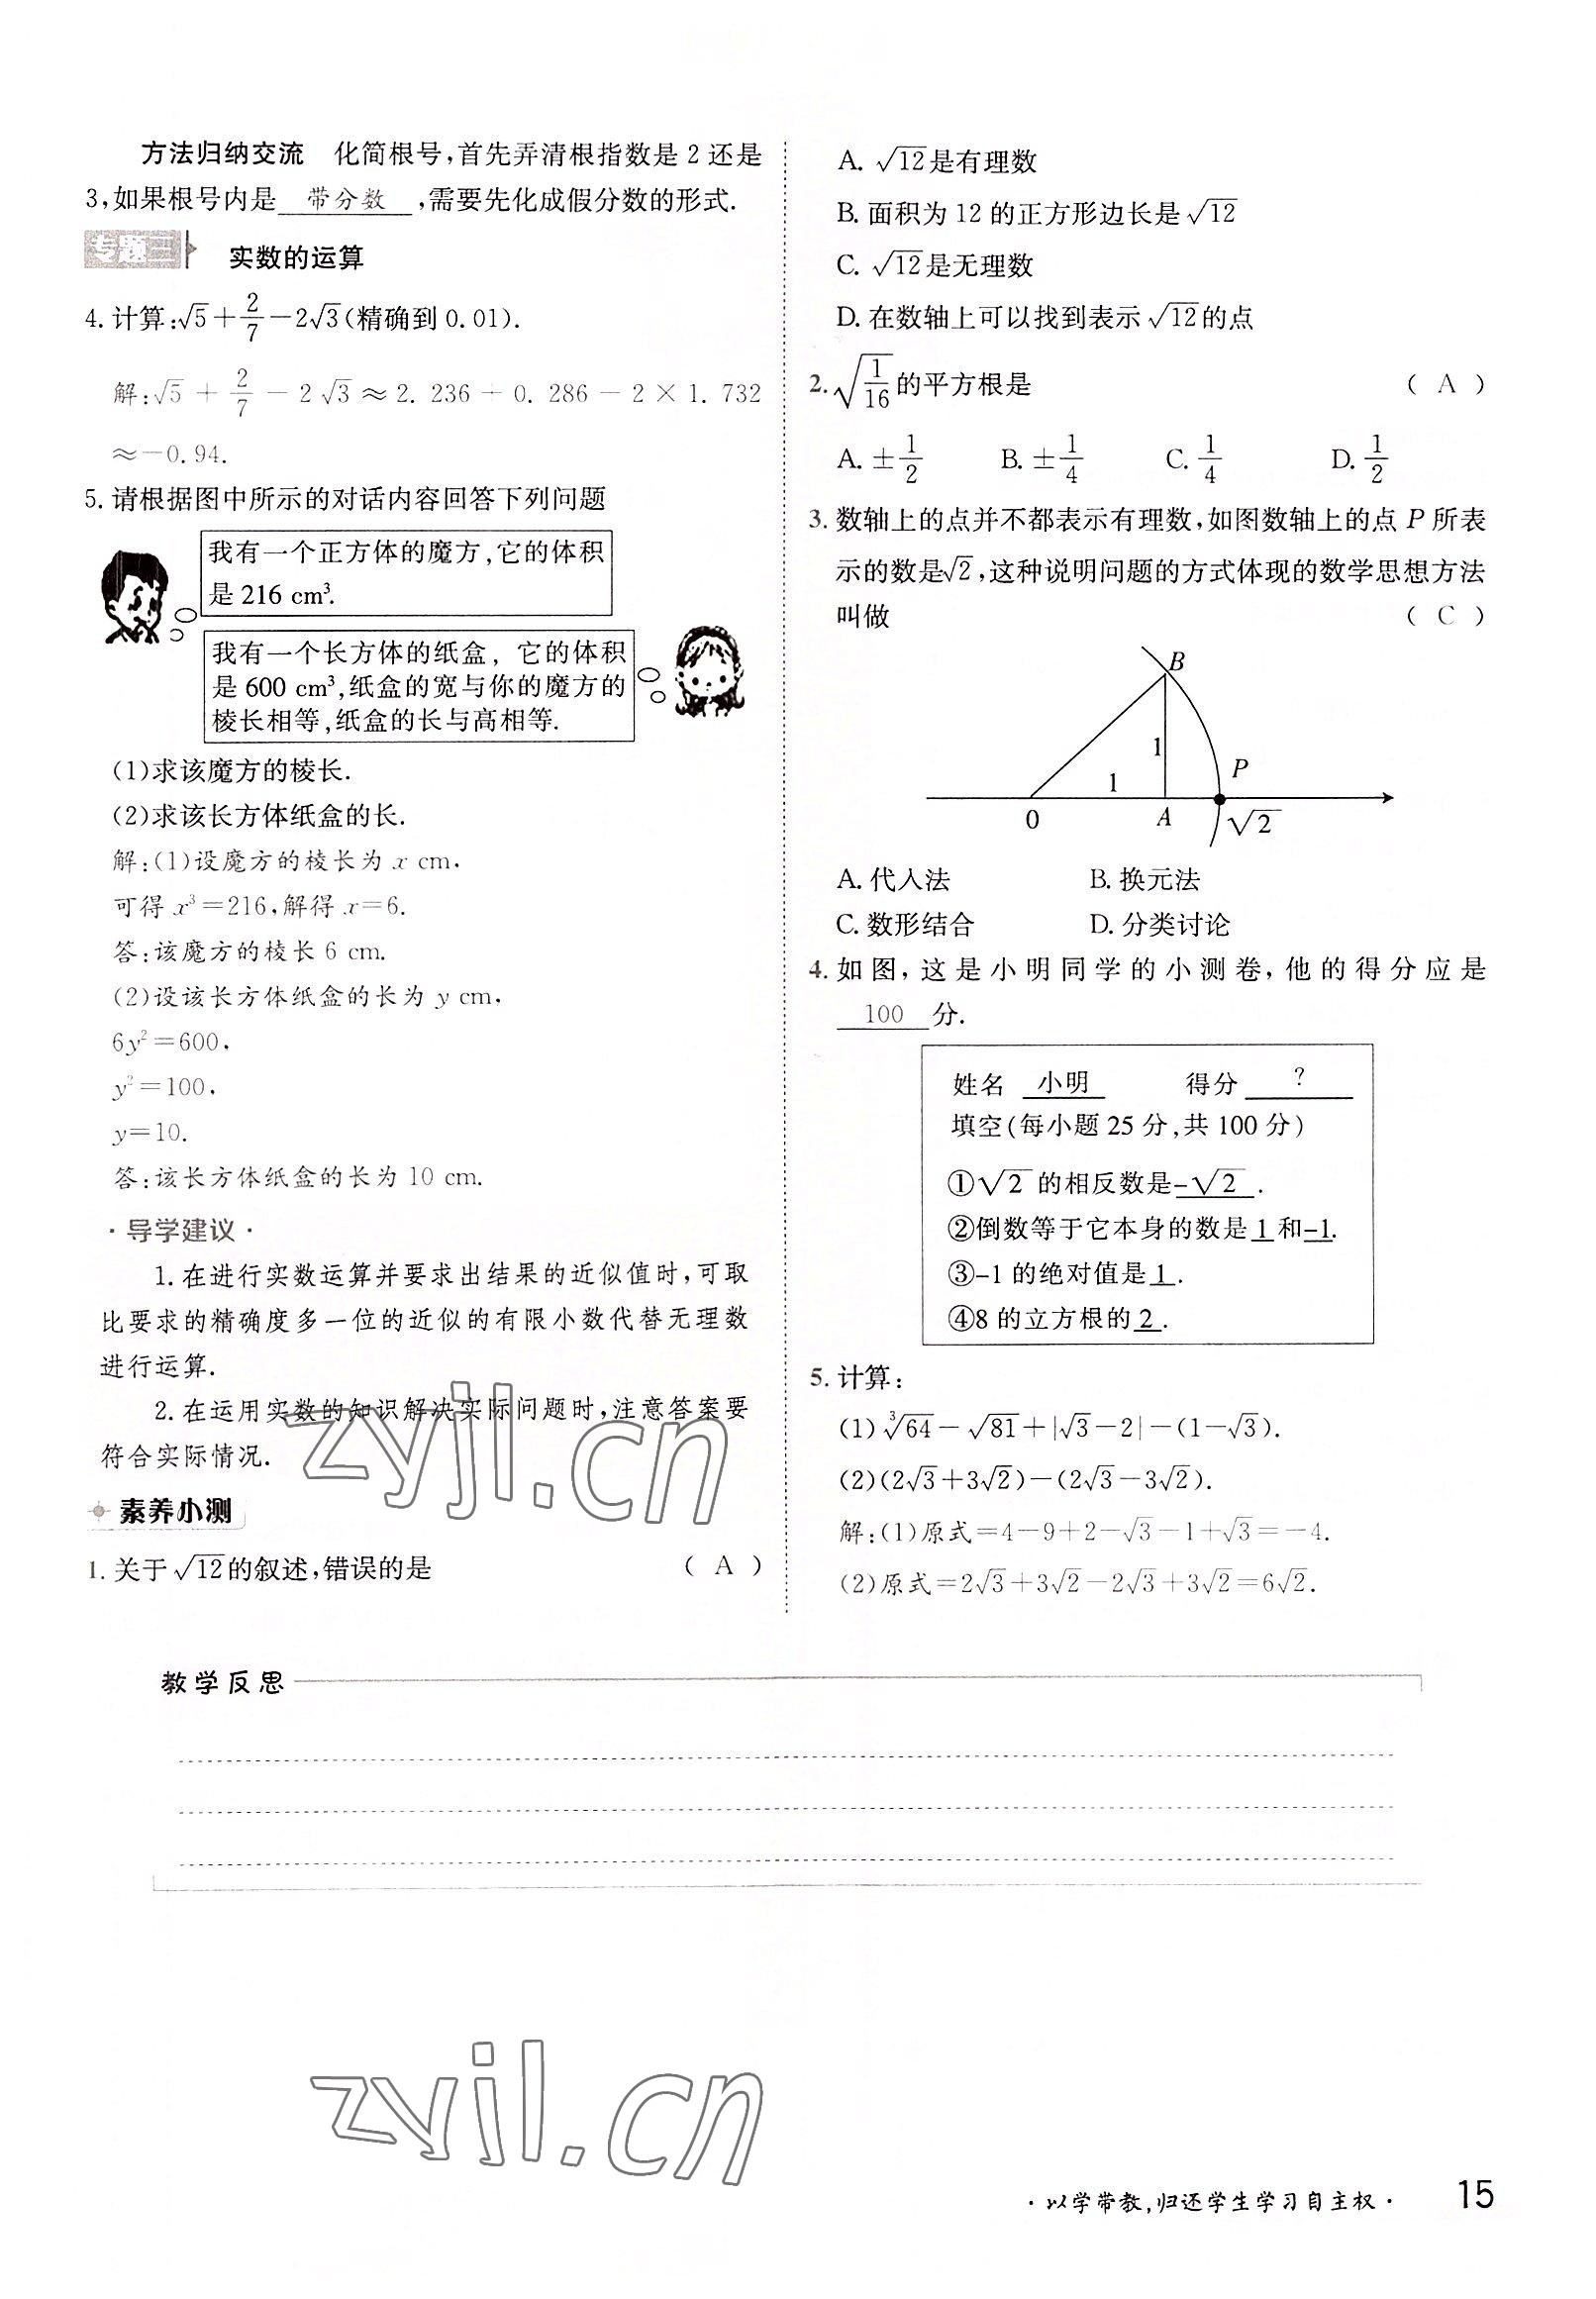 方法归纳交流 化简根号,首先弄清根指数是 2 还是
3,如果根号内是 带分数 ,需要先化成假分数的形式.
专题二 实数的运算
4. 计算:√5+2/7-2√3(精确到 0.01).
解:√5+2/7-2√3≈2.236+0.286-2×1.732
≈-0.94.
5. 请根据图中所示的对话内容回答下列问题
我有一个正方体的魔方,它的体积
是 216 cm³.
我有一个长方体的纸盒, 它的体积
是 600 cm³,纸盒的宽与你的魔方的
棱长相等,纸盒的长与高相等.
(1)求该魔方的棱长.
(2)求该长方体纸盒的长.
解:(1)设魔方的棱长为 x cm,
可得 x³=216,解得 x=6.
答:该魔方的棱长 6 cm.
(2)设该长方体纸盒的长为 y cm,
6y²=600,
y²=100,
y=10.
答:该长方体纸盒的长为 10 cm.
·导学建议·
1. 在进行实数运算并要求出结果的近似值时,可取
比要求的精确度多一位的近似的有限小数代替无理数
进行运算.
2. 在运用实数的知识解决实际问题时,注意答案要
符合实际情况.
素养小测
1. 关于√12的叙述,错误的是 ( A )
A. √12是有理数
B. 面积为 12 的正方形边长是√12
C. √12是无理数
D. 在数轴上可以找到表示√12的点
2. √(1/16)的平方根是 ( A )
A. ±1/2 B. ±1/4 C. 1/4 D. 1/2
3. 数轴上的点并不都表示有理数,如图数轴上的点 P 所表
示的数是√2,这种说明问题的方式体现的数学思想方法
叫做 ( C )
B
1
1
P
0
A
√2
A. 代入法 B. 换元法
C. 数形结合 D. 分类讨论
4. 如图,这是小明同学的小测卷,他的得分应是
100 分.
姓名 小明 得分 ?
填空(每小题 25 分,共 100 分)
①√2 的相反数是-√2 .
②倒数等于它本身的数是 1 和-1.
③-1 的绝对值是 1 .
④8 的立方根的 2 .
5. 计算:
(1)³√64-√81+|√3-2|-(1-√3).
(2)(2√3+3√2)-(2√3-3√2).
解:(1)原式=4-9+2-√3-1+√3=-4.
(2)原式=2√3+3√2-2√3+3√2=6√2.
教学反思
zyjl.cn
zyjl.cn
·以学带教,归还学生学习自主权· 15